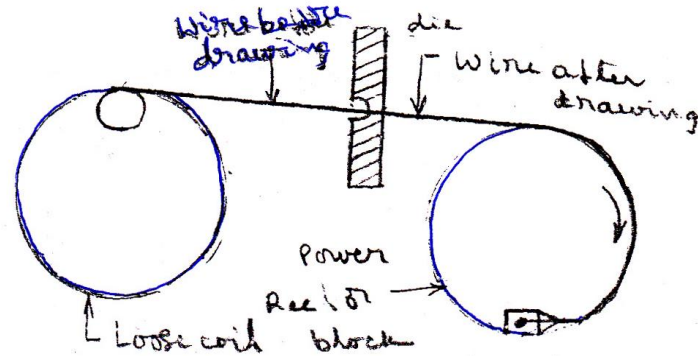 Wire before
drawing
die
Wire after
drawing
Power
Reel or
block
Loose coil